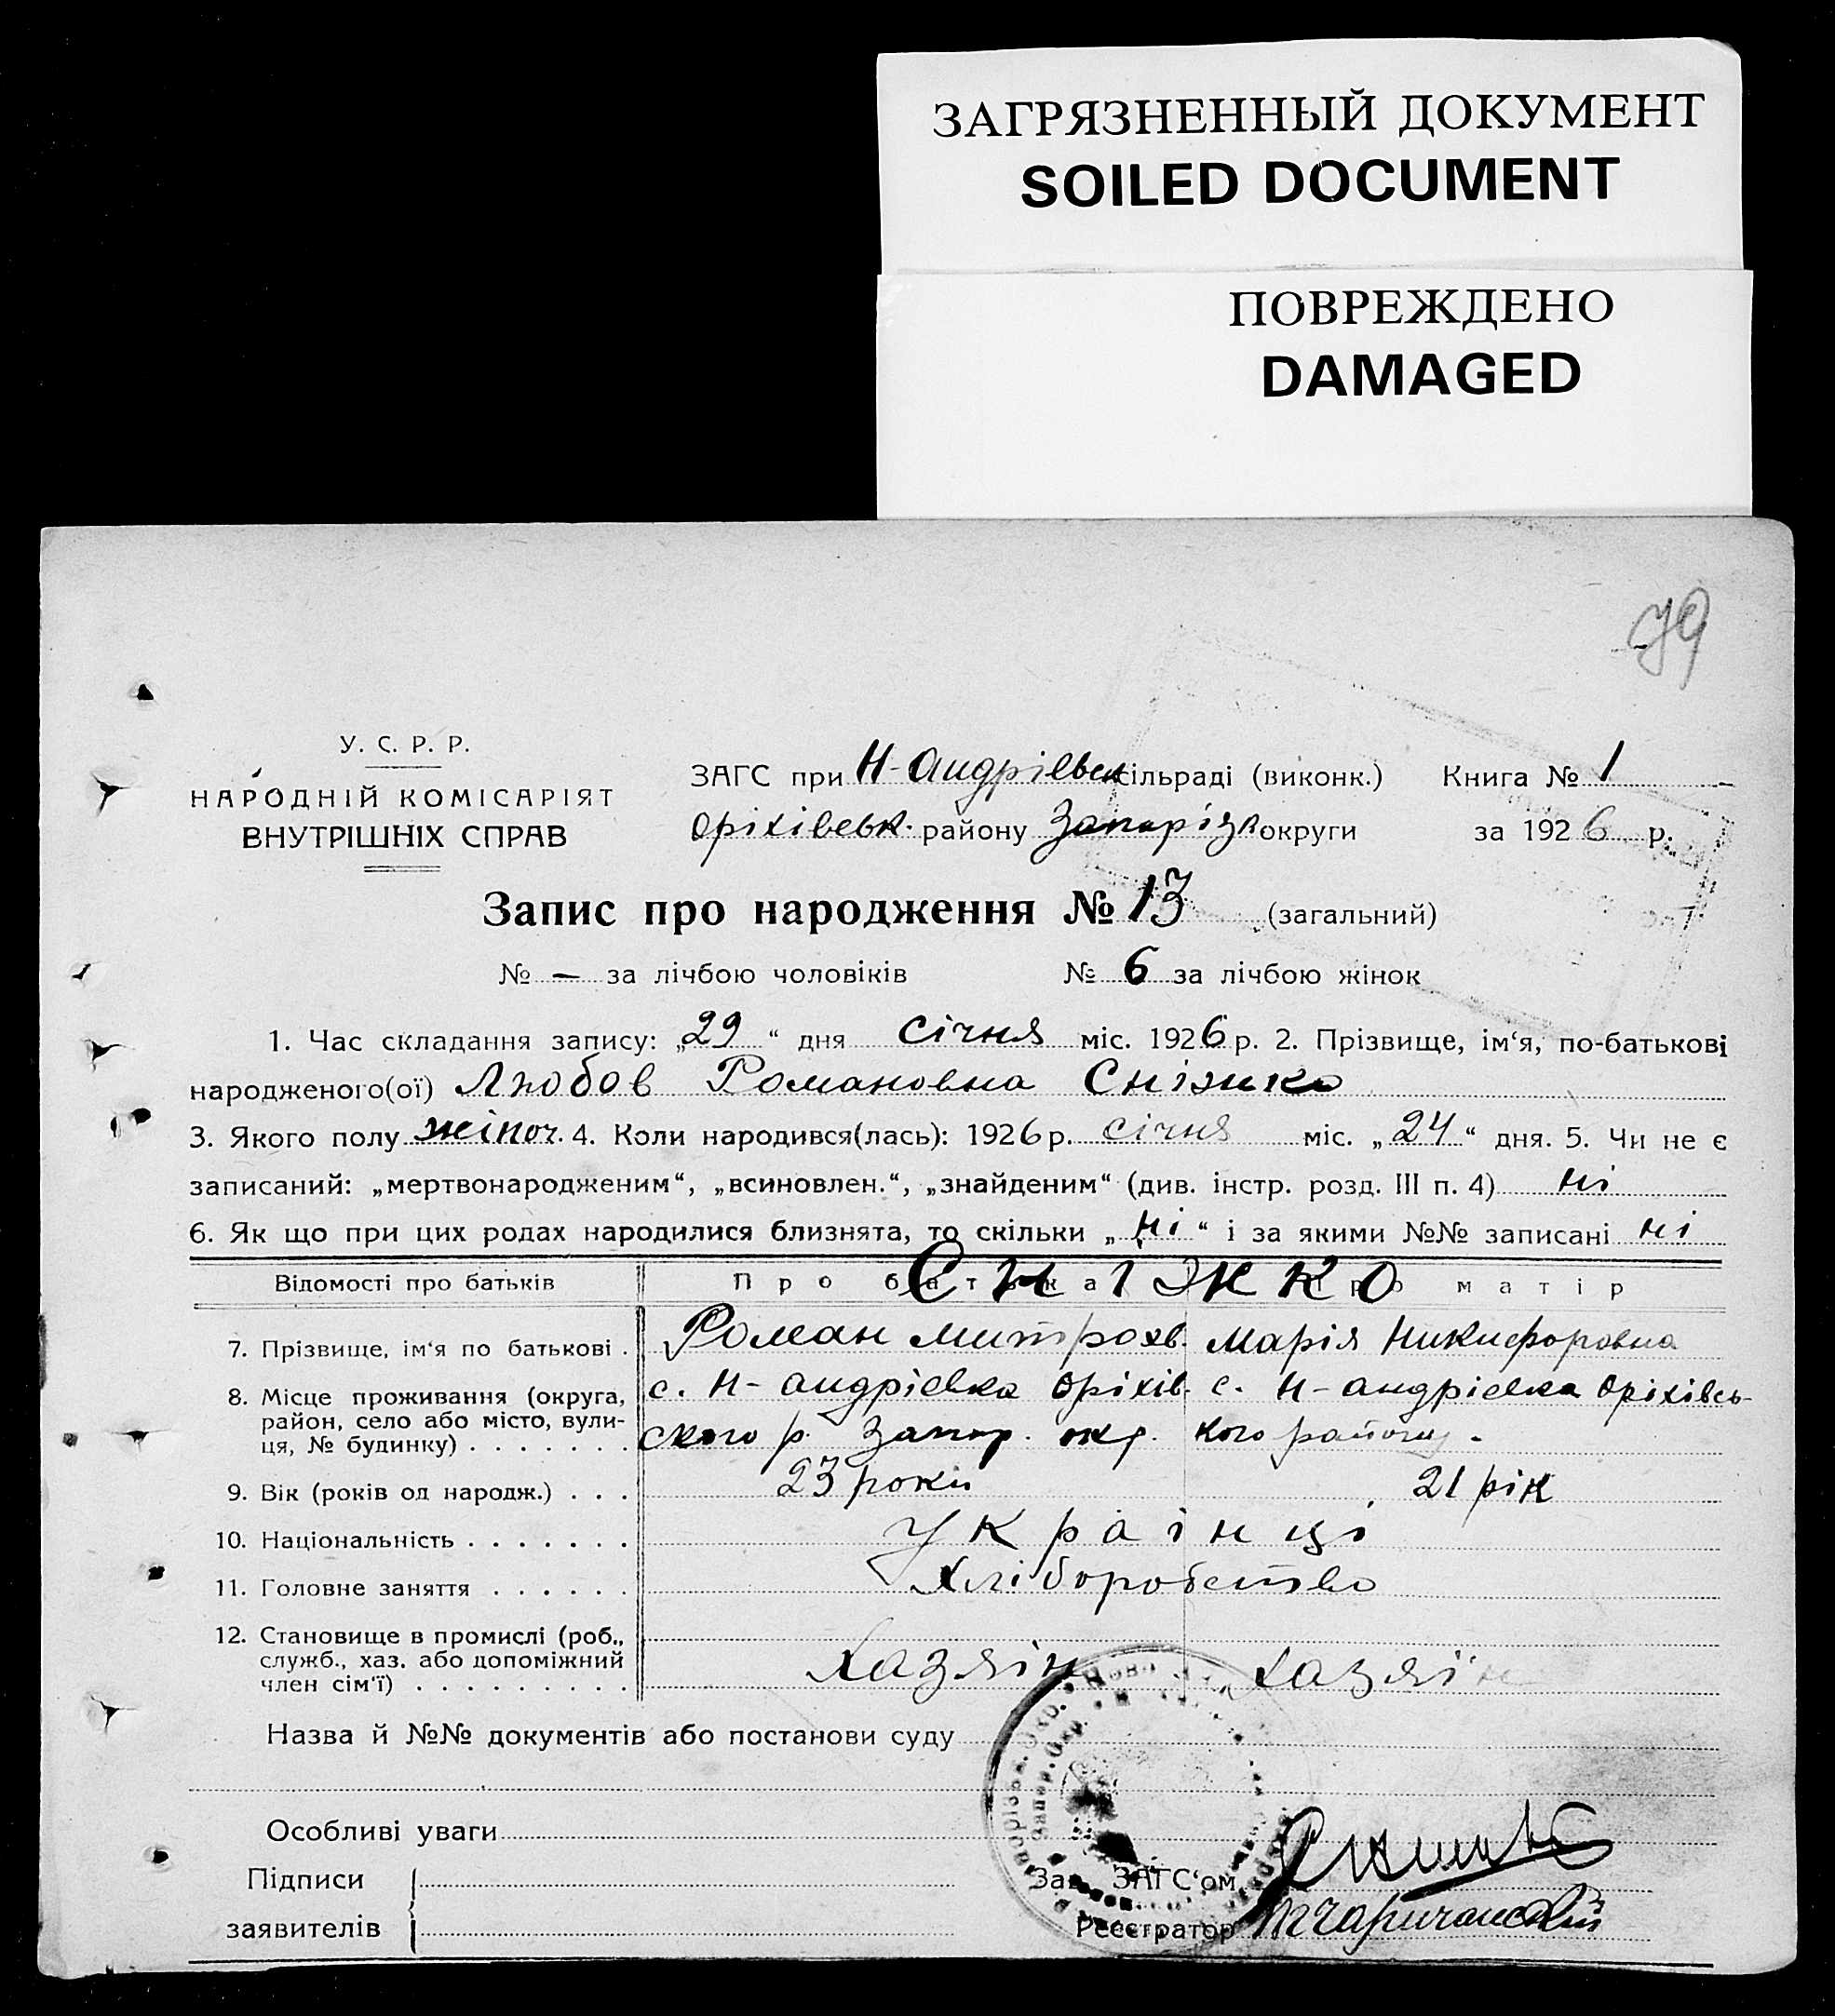 ЗАГРЯЗНЕННЫЙ ДОКУМЕНТ
SOILED DOCUMENT
ПОВРЕЖДЕНО
DAMAGED
79
У. С. Р. Р.
НАРОДНІЙ КОМІСАРІЯТ
ВНУТРІШНІХ СПРАВ
ЗАГС при Н-Андрієвск сільраді (виконк.) Книга № 1
Оріхівськ. району Запоріз округи за 1926 р.
Запис про народження № 13 (загальний)
№ — за лічбою чоловіків № 6 за лічбою жінок
1. Час складання запису: „29“ дня січня міс. 1926 р. 2. Прізвище, ім‘я, по-батькові
народженого(ої) Любов Романовна Сніжко
3. Якого полу жіноч. 4. Коли народився(лась): 1926 р. січня міс. „24“ дня. 5. Чи не є
записаний: „мертвонародженим“, „всиновлен.“, „знайденим“ (див. інстр. розд. III п. 4) ні
6. Як що при цих родах народилися близнята, то скільки „ні“ і за якими №№ записані ні
Відомості про батьків Про батька Про матір
Сніжко
7. Прізвище, ім‘я по батькові . Роман Митрохв. Марія Никифоровна
8. Місце проживання (округа, с. Н-андрієвка Оріхів- с. Н-андрієвка Оріхівсь-
район, село або місто, вули-
ця, № будинку) . . . . . . . ського р. Запор. окр. кого району -
9. Вік (років од народж.) . . . 23 роки 21 рік
10. Національність . . . . . . . Українці
11. Головне заняття . . . . . . Хліборобство
12. Становище в промислі (роб.,
служб., хаз. або допоміжний
член сім‘ї) . . . . . . . . . Хазяїн хазяїн
Назва й №№ документів або постанови суду
Особливі уваги
Підписи
Зав. ЗАГС‘ом
заявителів
Реєстратор